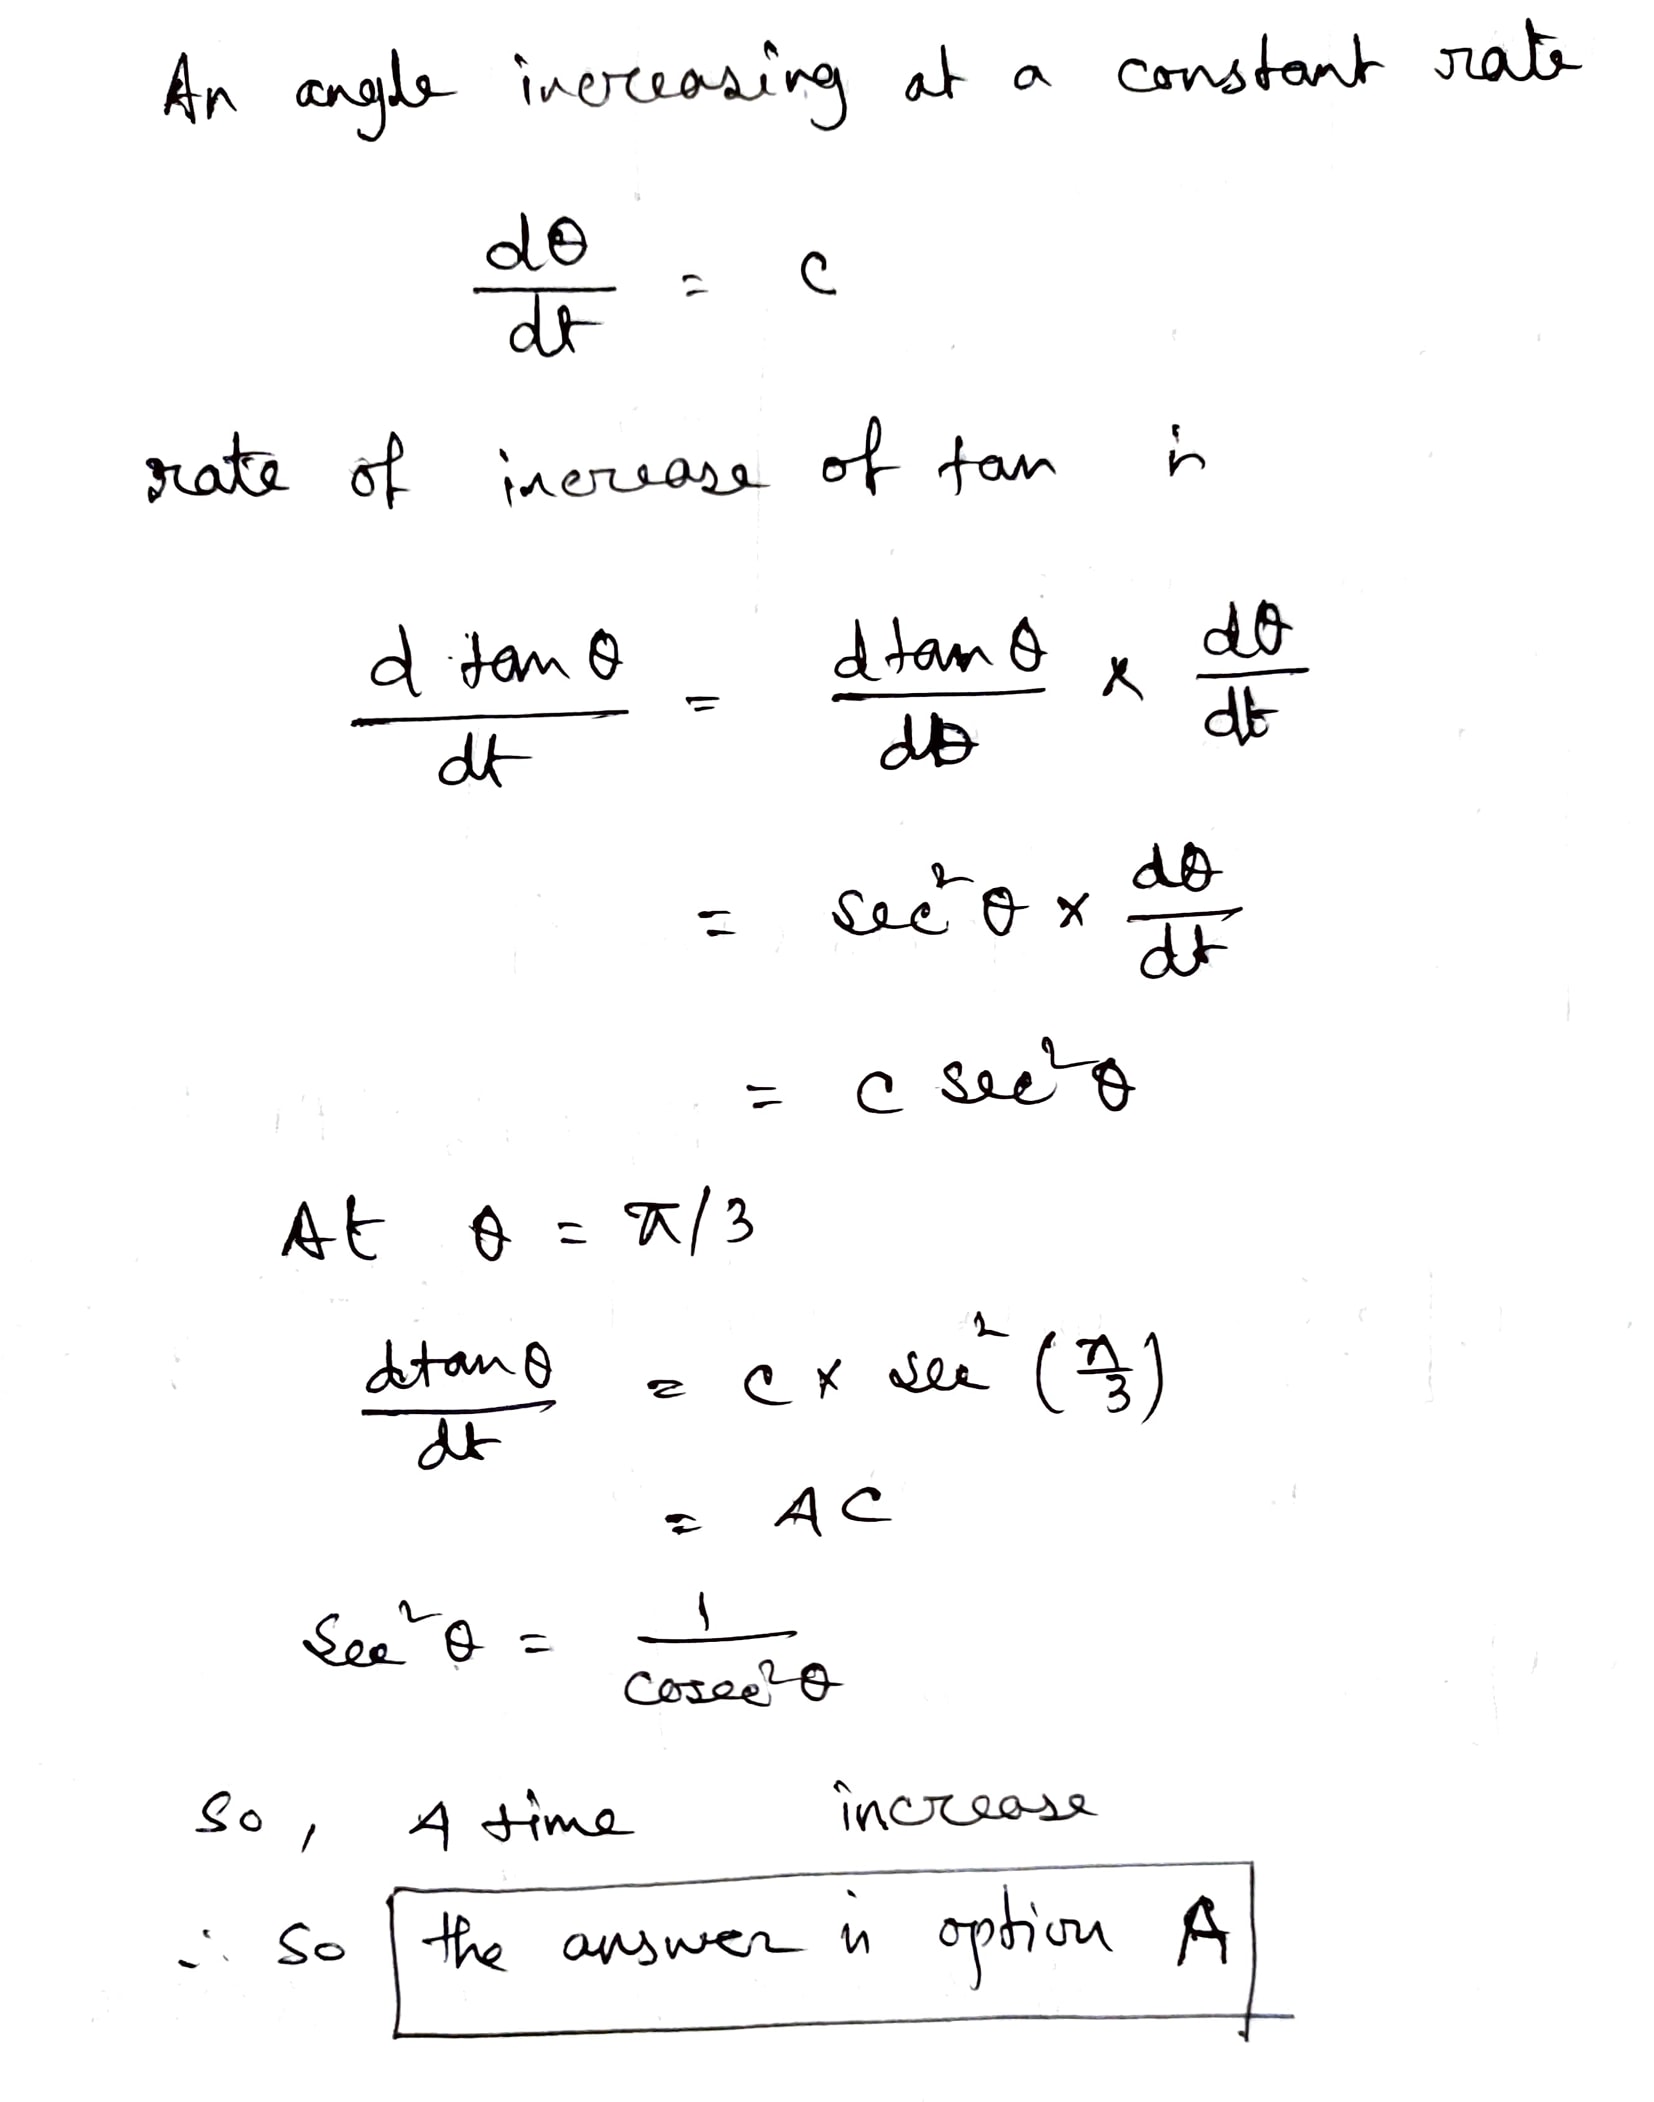 An angle increasing at a constant rate
dθ/dt = c
rate of increase of tan is
d tan θ/dt = d tan θ/dθ × dθ/dt
= sec²θ × dθ/dt
= c sec²θ
At θ = π/3
d tan θ/dt = c × sec² (π/3)
= 4C
sec²θ = 1/cosec²θ
So, 4 time increase
∴ So the answer is option A